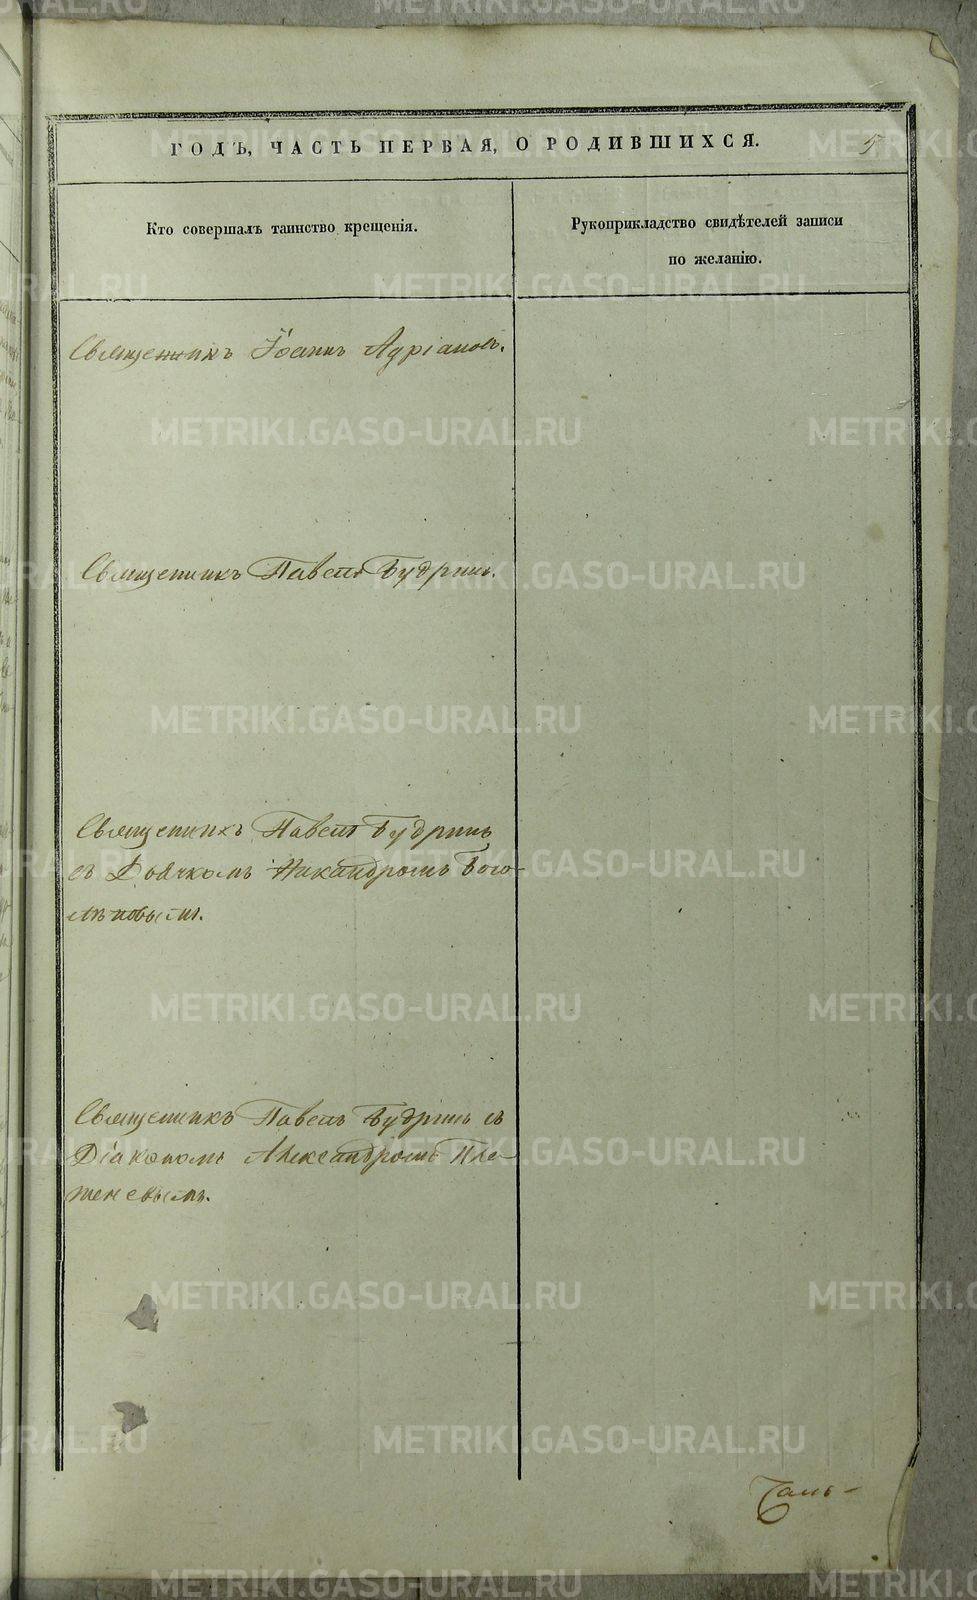 ГОДЪ, ЧАСТЬ ПЕРВАЯ, О РОДИВШИХСЯ. 5
Кто совершалъ таинство крещенія.
Рукоприкладство свидѣтелей записи
по желанію.
Священникъ Іоаннъ Адріановъ.
Священникъ Павелъ Будринъ.
Священникъ Павелъ Будринъ
съ Дьячкомъ Никандромъ Бого-
лѣповымъ.
Священникъ Павелъ Будринъ съ
Діакономъ Александромъ Пле-
шневымъ.
METRIKI.GASO-URAL.RU